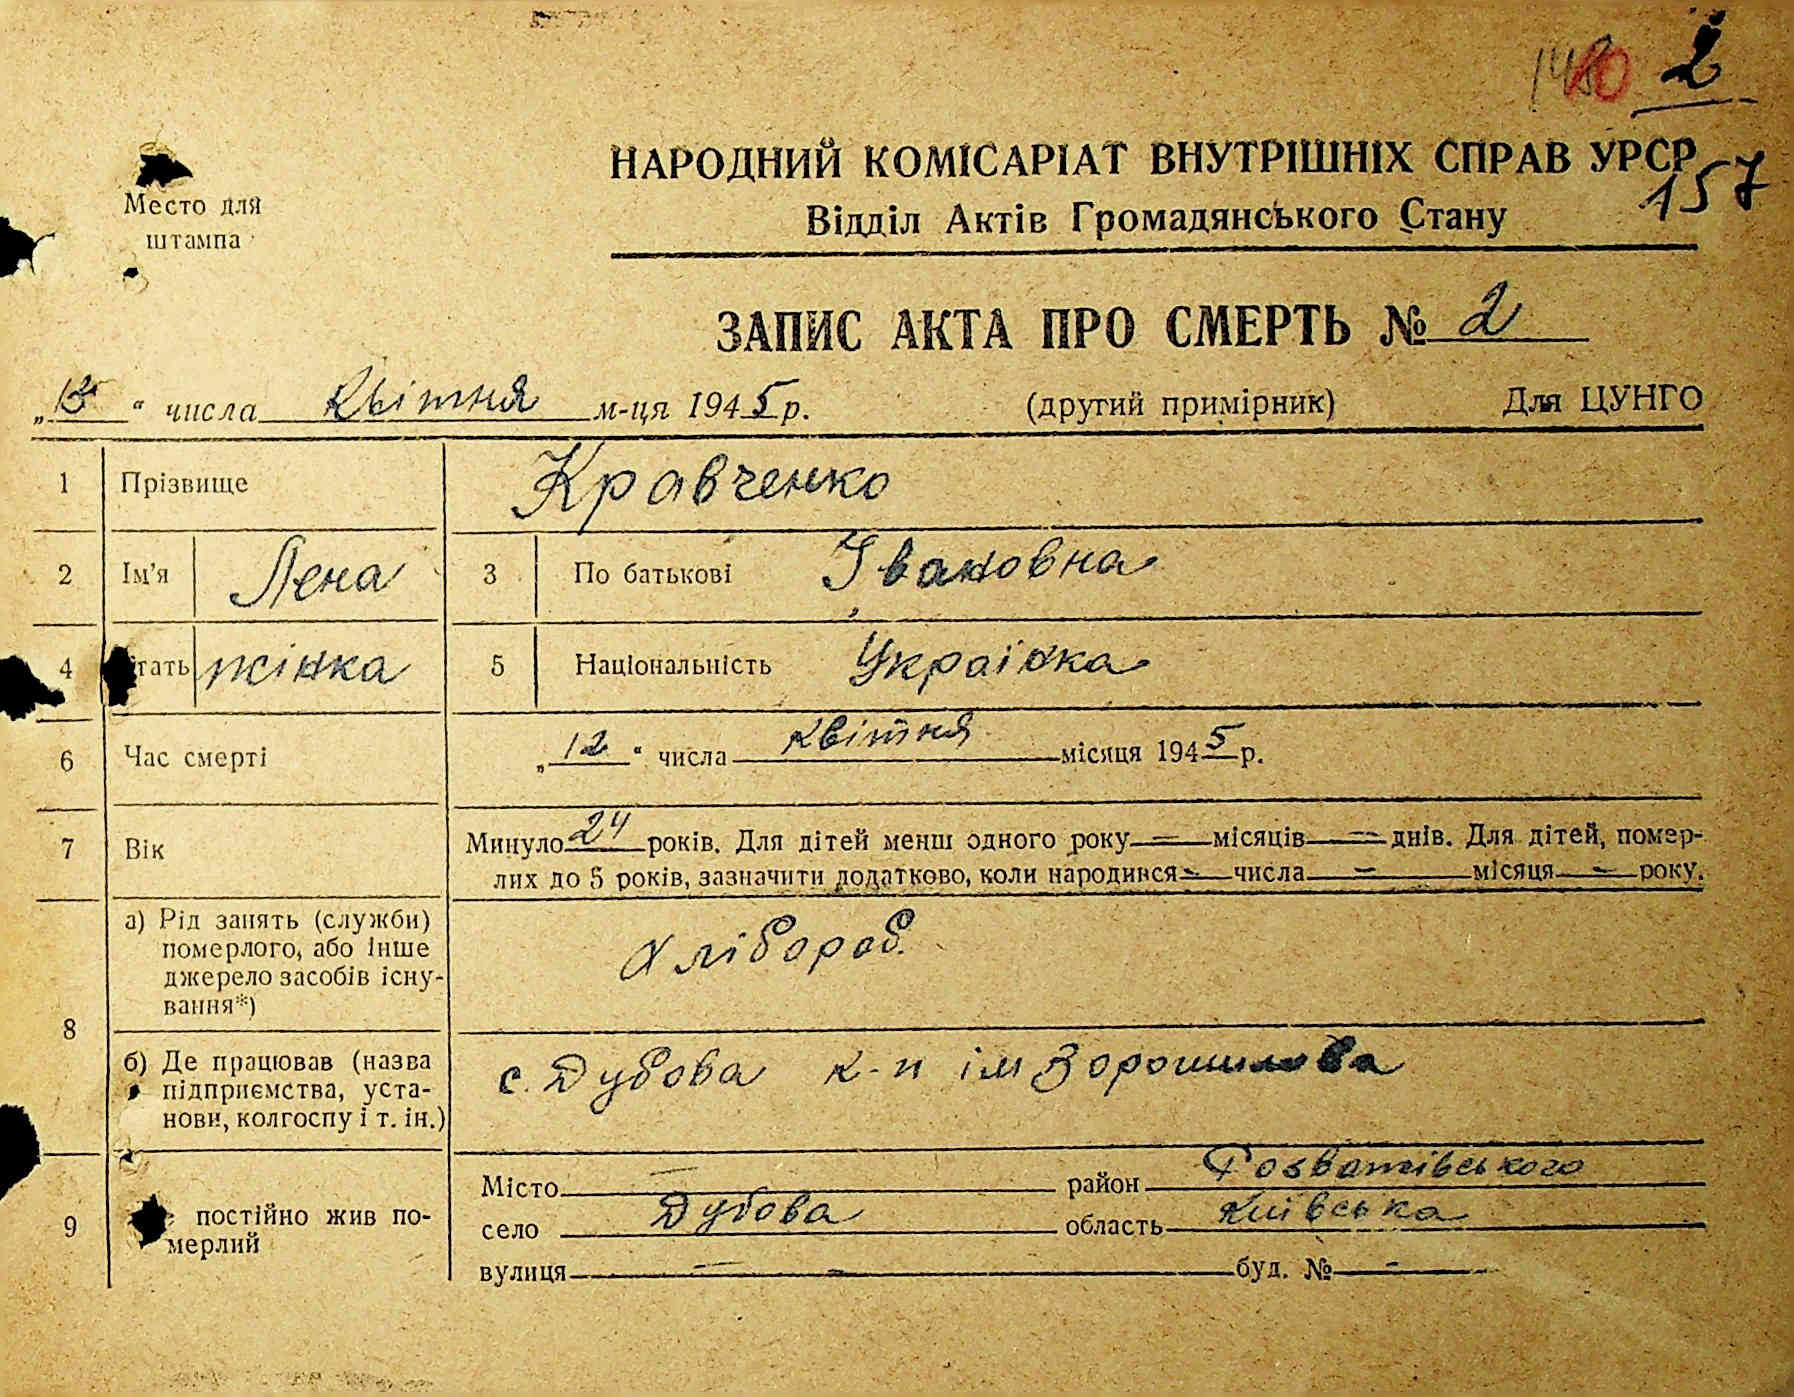 2
157
Место для
штампа
НАРОДНИЙ КОМІСАРІАТ ВНУТРІШНІХ СПРАВ УРСР
Відділ Актів Громадянського Стану
ЗАПИС АКТА ПРО СМЕРТЬ № 2
„ “ числа Квітня м-ця 1945 р. (другий примірник) Для ЦУНГО
1 Прізвище Кравченко
2 Ім’я Лена 3 По батькові Івановна
4 тать жінка 5 Національність Українка
6 Час смерті „12“ числа квітня місяця 1945 р.
7 Вік Минуло 24 років. Для дітей менш одного року — місяців — днів. Для дітей, помер-
лих до 5 років, зазначити додатково, коли народився - числа - місяця - року.
8 а) Рід занять (служби)
померлого, або інше
джерело засобів існу-
вання*)
Хлібороб.
б) Де працював (назва
підприємства, уста-
нови, колгоспу і т. ін.)
с. Дубова к-п ім Ворошилова
9 постійно жив по-
мерлий
Місто — район Розватівського
село Дубова область Київська
вулиця — - буд. № -